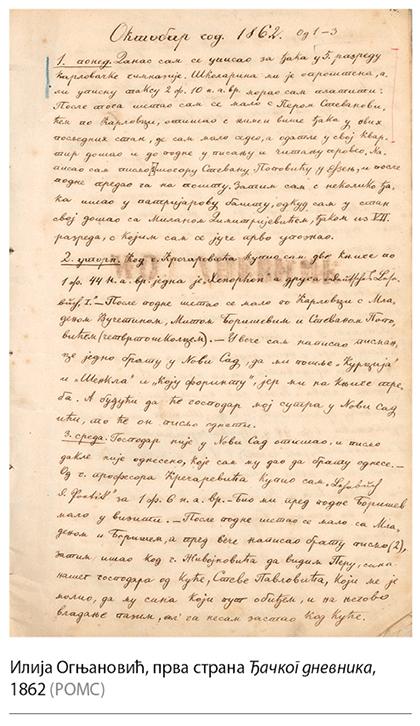 Октобар год. 1862. од 1–3
1. понед. Данас сам се уписао за ђака у 5. разреду
карловачке гимназије. Школарина ми је опроштена, а
ли уписну таксу 2 ф. 10 н. а. вр. морао сам платити.
После тога шетао сам се мало с Пером Стеванови-
ћем по Карловци, отишао с њиме више ђака у ових
последних стан, де сам мало седео, а одатле у свој квар-
тир дошао и до подне у писању и читању провео. На-
писао сам писмо Стевану Поповићу у и после
подне предао га на пошту. Затим сам с неколико ђа-
ка ишао у патријарову башту, одкуд сам у стан
свој дошао са Миланом Димитријевићем, ђаком из VII.
разреда, с којим сам се јуче прво упознао.
2. уторн. Код г. Кречаревића купио сам две књиге по
1 ф. 44 н. а. вр. једна је Ксенофон а друга
I. — После подне шетао се мало по Карловци с Мла-
деном Вучетином, Митом Ђоришевим и Стеваном Попо-
вићем (четвртошколцем). — У вече сам написао писман-
це једно брату у Нови Сад, да ми пошље „Курција“
и „Шенкла“ и „коју форинту“, јер ми на књиге тре-
ба. А будући да ће господар мој сутра у Нови Сад
ићи, то ће он писмо однети.
3. среда. Господар није у Нови Сад отишао, и писмо
дакле није однесено, које сам му дао да брату однесе. —
Од г. професора Кречаревића купио сам
за 1 ф. 6 н. а. вр. — Био ми пред подне Ђоришев
мало у визити. — После подне шетао се мало са Мла-
деном и Ђоришем, а пред вече написао брату писмо (2),
затим ишао код г. Живојновића да видим Перу, сина
нашег господара од куће, Стеве Павловића, који ме је
молио, да му сина који пут обиђем, и на његово
владање пазим, ал' га несам застао код куће.
Илија Огњановић, прва страна Ђачког дневника,
1862 (РОМС)